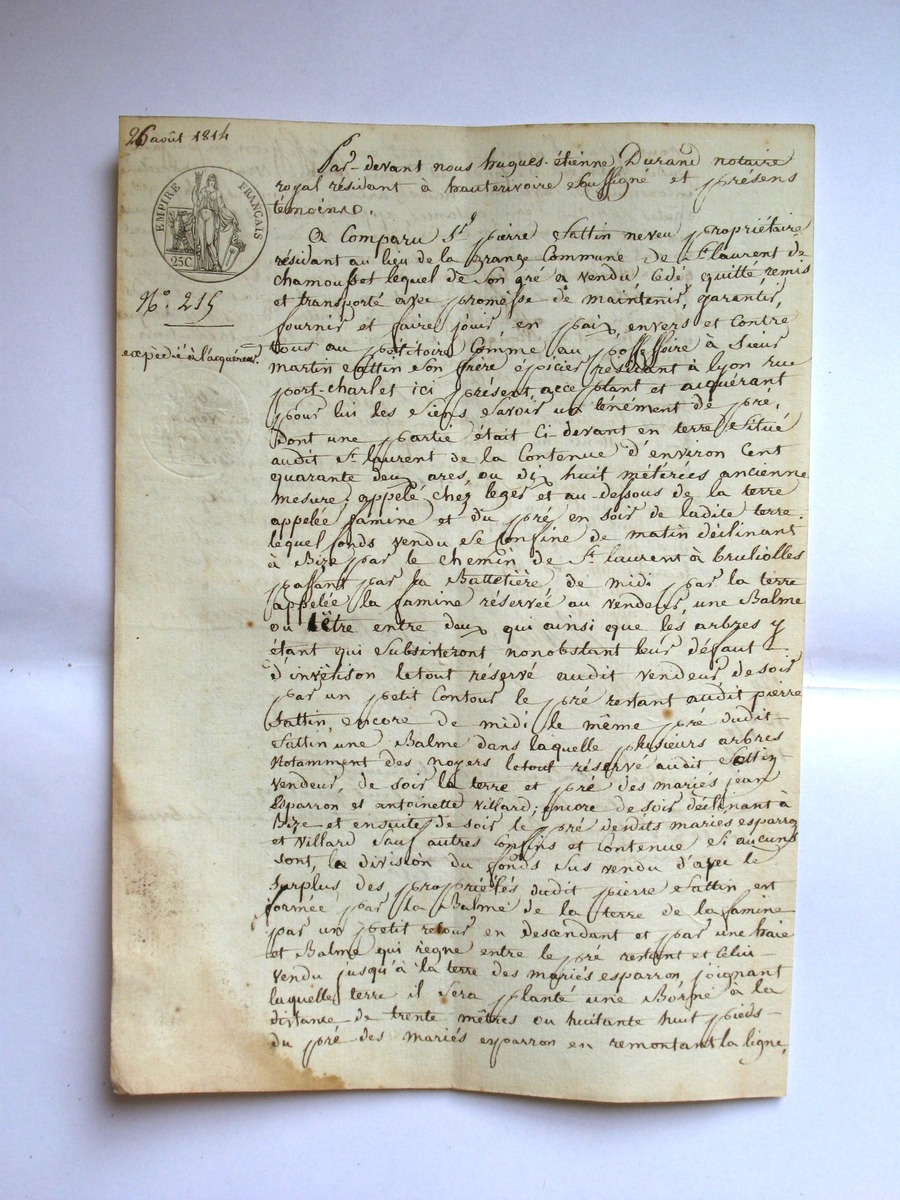 26 août 1814
EMPIRE FRANÇAIS
25C
N.º 215
expedié à l'acquéreur
Par-devant nous hugues-étienne Durand notaire
royal résidant à hauterivoire soussigné et présens
témoins.
A Comparu S.r pierre sattin neveu propriétaire
résidant au lieu de la grange Commune de S.t laurent de
chamousset lequel de son gré a vendu, Cédé, quitté, remis
et transporté avec promesse de maintenir, garantir,
fournir et faire jouir, en paix, envers et Contre
tous au pétitoire Comme au possessoire à sieur
martin sattin son frère épicier résidant à lyon rue
port-charlet ici présent, acceptant et acquérant
pour lui les siens savoir un ténément de pré,
Dont une partie était Ci-devant en terre situé
audit S.t laurent de la Contenue d'environ Cent
quarante deux ares, ou dix huit métérées ancienne
mesure, appelé chez leger et au-dessous de la terre
appelée famine et du pré en soir de ladite terre.
lequel fonds vendu se Confine de matin déclinant
à Bize par le chemin de S.t laurent à brulliolles
passant par la Battetière de midi par la terre
appelée la famine réservée au vendeur, une Balme
ou entre deux qui ainsi que les arbres y
étant qui subsisteront, nonobstant leur défaut
d'invêtison le tout réservé audit vendeur de soir
par un petit Contour le pré restant audit pierre
sattin, encore de midi le même pré dudit
sattin une Balme dans laquelle plusieurs arbres
Notamment des noyers le tout réservé audit sattin
vendeur, de soir la terre et pré des mariés jean
Esparron et antoinette villard; encore de soir déclinant à
Bize et ensuite de soir le pré desdits mariés esparron
et villard sauf autres Confins et Contenue si aucuns
sont, la division du fonds sus vendu d'avec le
surplus des propriétés dudit pierre sattin est
formée par la Balme de la terre de la famine
par un petit retour en descendant et par une haie
et Balme qui règne entre le pré restant et Celui
vendu jusqu'à la terre des mariés esparron joignant
laquelle terre il sera planté une Borne à la
distance de trente mètres ou huitante huit pieds
du pré des mariés esparron en remontant la ligne,